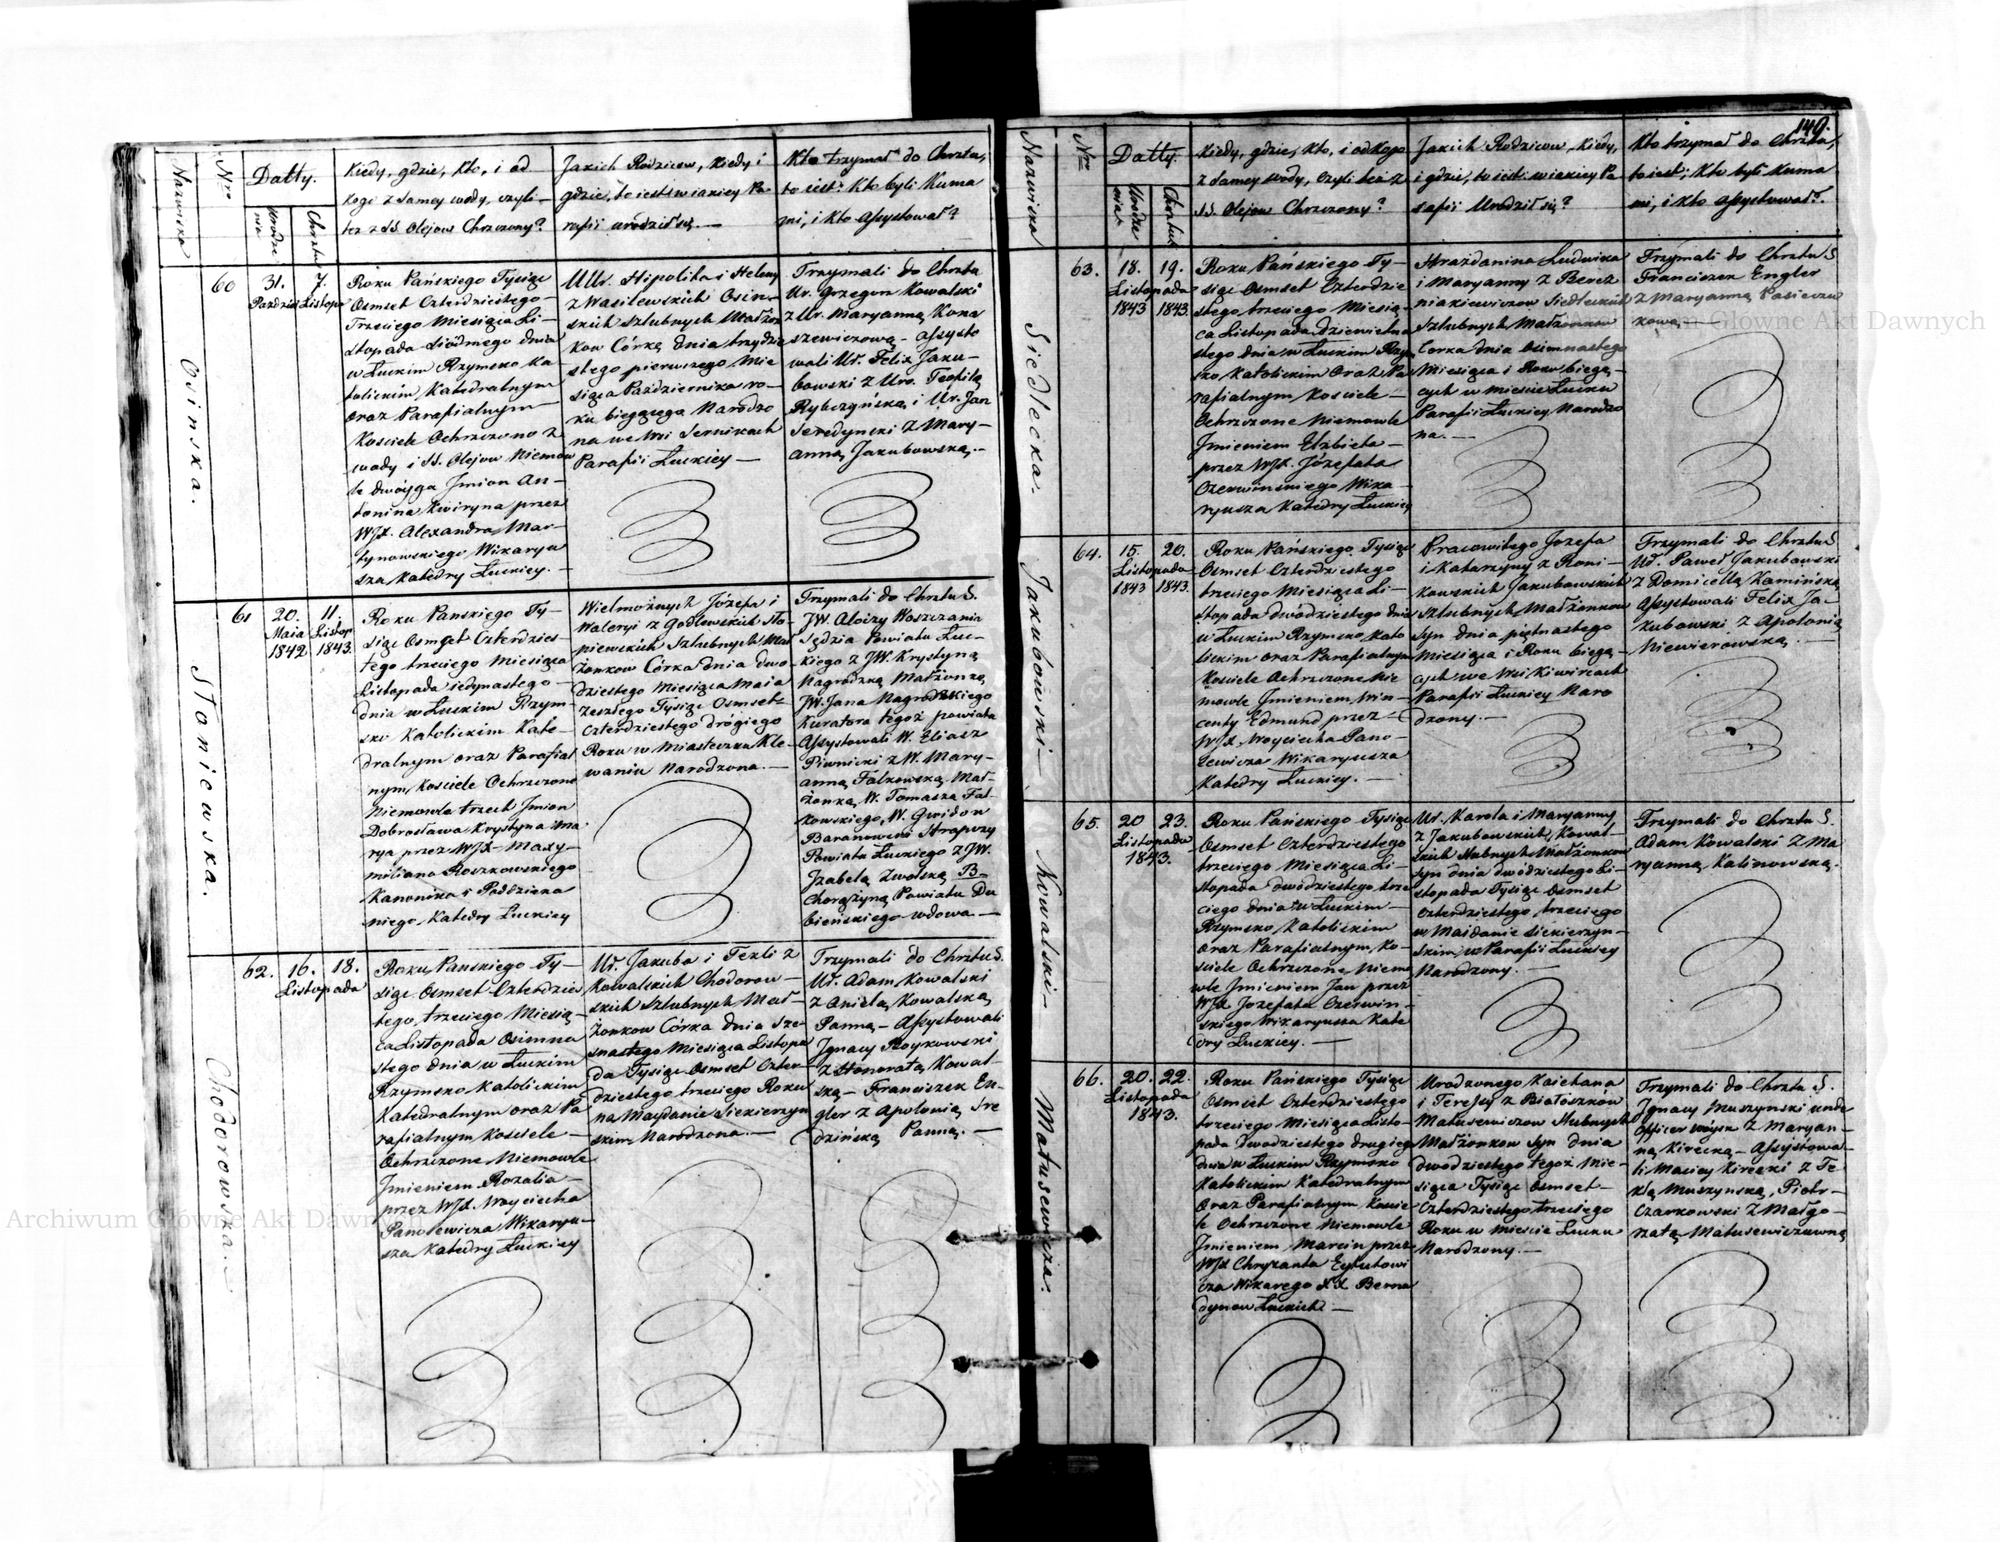 Nazwiska
Nro
Datty.
Urodze
nia
Chrztu
Kiedy, gdzie, Kto, i od
kogo z samey wody, czyli
też z SS. Olejow Chrzczony?
Jakich Rodzicow, Kiedy i
gdzie, to iest w iakiey Pa-
rafii urodził się. —
Kto trzymał do Chrztu,
to iest: Kto byli Kuma
mi, i Kto Assystował?
Osinska.
60
31.
Pazdzier
7.
Listopa
Roku Pańskiego Tysiąc
Osmset Czterdziestego
Trzeciego Miesiąca Li-
stopada siódmego dnia
w Łuckim Rzymsko Ka
tolickim Katedralnym
oraz Parafialnym
Kosciele Ochrzczono z
wody i SS. Olejow Niemow
le dwóyga Jmion An-
tonina Kwiryna przez
WJX. Alexandra Mar-
tynowskiego Wikaryu
sza Katedry Łuckiey. —
UUr. Hipolita i Heleny
z Wasilewskich Osin-
skich Szlubnych Małżon
kow Córkę dnia trzydzie
stego pierwszego Mie
siąca Października ro-
ku bieżącego Narodzo
na we Wsi Sernikach
Parafii Łuckiey —
Trzymali do Chrztu
Ur. Grzegorz Kowalski
z Ur. Maryanną Koma
szewiczową — Assysto
wali Ur. Felix Jaku-
bowski z Uro. Teofilą
Rybczyńską, i Ur. Jan
Seredynski z Mary-
anną Jakubowską. —
Stoniewska.
61
20.
Maia
1842
11.
Listop
1843.
Roku Panskiego Ty-
siąc Osmset Czterdzies-
tego trzeciego Miesiąca
Listopada iedynastego
dnia w Łuckim Rzym-
sko Katolickim Kate-
dralnym oraz Parafial
nym, Kosciele Ochrzczono
Niemowle trzech Jmion
Dobrosława Krystyna Ma
rya przez WJX Maxy-
miliana Roszkowskiego
Kanonika i Poddzieka
niego, Katedry Łuckiey
Wielmożnych Józefa i
Waleryi z Godlewskich Sto-
niewskich Szlubnych Mał
żonkow Córka dnia dwu-
dziestego Miesiąca Maia
Zeszłego Tysiąc Osmset
czterdziestego drógiego
Roku w Miasteczku Kle-
waniu Narodzona. —
Trzymali do Chrztu S.
JW. Aloizy Woszczanin
Sędzia Powiatu Łuc-
kiego z JW. Krystyną
Nagrodzką Małżonzą
JW. Jana Nagrodzkiego
Kuratora tegoż powiatu
Assystowali W. Eliasz
Piwnicki z W. Mary-
anną Falkowską Mał-
żonką W. Tomasza Fal-
kowskiego, W. Gwidon
Baranowski Strapczy
Powiatu Łuckiego z JW.
Jzabelą Zwolską B.
Chorążyną Powiatu Du
bieńskiego wdowa —
Chodorowska. —
62.
16. 18.
Listopada
Roku Panskiego Ty-
siąc Osmset Czterdzies
tego trzeciego Miesią-
ca Listopada Osimna
stego dnia w Łuckim
Rzymsko Katolickim
Katedralnym oraz Pa
rafialnym Kosciele —
Ochrzczono Niemowle
Jmieniem Rozalia —
przez WJX. Woyciecha
Panosewicza Wikaryu-
sza Katedry Łuckiey
Ur. Jakuba i Tekli z
Kowalskich Chodorow-
skich Szlubnych Mał-
żonkow Córka dnia sze-
snastego Miesiąca Listopa
da Tysiąc Osmset Czter-
dziestego trzeciego Roku
na Maydanie Siekierzyn
skim Narodzona. —
Trzymali do Chrztu S.
Ur. Adam Kowalski
z Anielą Kowalską
Panną — Assystowali
Jgnacy Boykowski
z Honoratą Kowal-
ską — Franciszek En-
gler z Apolonią Sre
dzińską Panną. —
149.
Nazwiska
Nro
Datty.
Urodze
nia
Chrztu
Kiedy, gdzie, Kto, i od Kogo
z samey wody, czyli też z
SS. Olejow Chrzczony?
Jakich Rodzicow, Kiedy,
i gdzie, to iest w iakiey Pa
rafii Urodził się?
Kto trzymał do Chrztu,
to iest; Kto byli Kuma
mi, i Kto Assystował?
Siedlecka.
63.
18. 19.
Listopada
1843 1843.
Roku Pańskiego Ty-
siąc Osmset Czterdzie
stego trzeciego Miesią-
ca Listopada dziewietna
stego dnia w Łuckim Rzym
sko Katolickim Oraz Pa
rafialnym Kosciele —
Ochrzczono Niemowle
Jmieniem Elzbieta —
przez WJX. Józefata
Czerwinskiego Wika-
ryusza Katedry Łuckiey
Hrażdanina Ludwika
i Maryanny z Berez
niakiewiczow Siedleckich
Szlubnych Małżonkow
Corka dnia Osimnastego
Miesiąca i Roku bieżą-
cych w Miescie Łucku
Parafii Łuckiey Narodzo
na. —
Trzymali do Chrztu S.
Franciszek Engler
z Maryanną Pasieczn
kową. —
Jakubowski —
64.
15. 20.
Listopada
1843 1843.
Roku Pańskiego Tysiąc
Osmset Czterdziestego
trzeciego Miesiąca Li-
stopada dwódziestego dnia
w Łuckim Rzymsko Kato
lickim oraz Parafialnym
Kosciele Ochrzczono Nie
mowle Jmieniem Win-
centy Edmund przez
WJX. Woyciecha Pano-
sewicza Wikaryusza
Katedry Łuckiey. —
Pracowitego Jozefa
i Katarzyny z Roni-
kowskich Jakubowskich
Szlubnych Małżonkow
Syn dnia piętnastego
Miesiąca i Roku bieżą-
cych we Wsi Kiwercach
Parafii Łuckiey Naro
dzony. —
Trzymali do Chrztu S.
Ur. Paweł Jakubowski
z Domicellą Kamińską
Assystowali Felix Ja-
kubowski z Apolonią
Niewierowską. —
Kowalski —
65.
20 23.
Listopada
1843.
Roku Pańskiego Tysiąc
Osmset Czterdziestego
trzeciego Miesiąca Li-
stopada dwódziestego trze
ciego dnia w Łuckim —
Rzymsko Katolickim
oraz Parafialnym, Ko-
sciele Ochrzczono Niemo
wle Jmieniem Jan przez
WJX Jozefata Czerwin-
skiego Wikaryusza Kate
dry Łuckiey. —
Ur. Karola i Maryanny
z Jakubowskich Kowal-
skich Slubnych Małżonkow
Syn dnia dwódziestego Li-
stopada Tysiąc Osmset
Czterdziestego trzeciego
w Maidanie Siekierzyn-
skim w Parafii Łuckiey
Narodzony. —
Trzymali do Chrztu S.
Adam Kowalski z Ma
ryanną Kalinowską.
Matusewicza.
66.
20. 22.
Listopada
1843.
Roku Pańskiego Tysiąc
Osmset Czterdziestego
trzeciego Miesiąca Listo-
pada Dwodziestego drugiego
dnia w Łuckim Rzymsko
Katolickim Katedralnym
Oraz Parafialnym Koscie
le Ochrzczono Niemowle
Jmieniem, Marcin przez
WJX Chryzanta Eytutowi
cza Wikarego XX Berna
dynow Łuckich —
Urodzonego Kaietana
i Teressy z Białoszkow
Matusewiczow Slubnych
Małżonkow Syn dnia
dwodziestego tegoż Mie-
siąca Tysiąc Osmset —
Czterdziestego trzeciego
Roku w Miescie Łucku
Narodzony. —
Trzymali do Chrztu S.
Jgnacy Muszynski unde
Officer woysk z Maryan-
ną Kirecką — Assystowa-
li Maciey Kirecki z Te
klą Muszynską, Piotr
Czarkowski z Małgo-
rzatą Matusewiczuwną
Archiwum Główne Akt Dawnych
Archiwum Główne Akt Dawnych